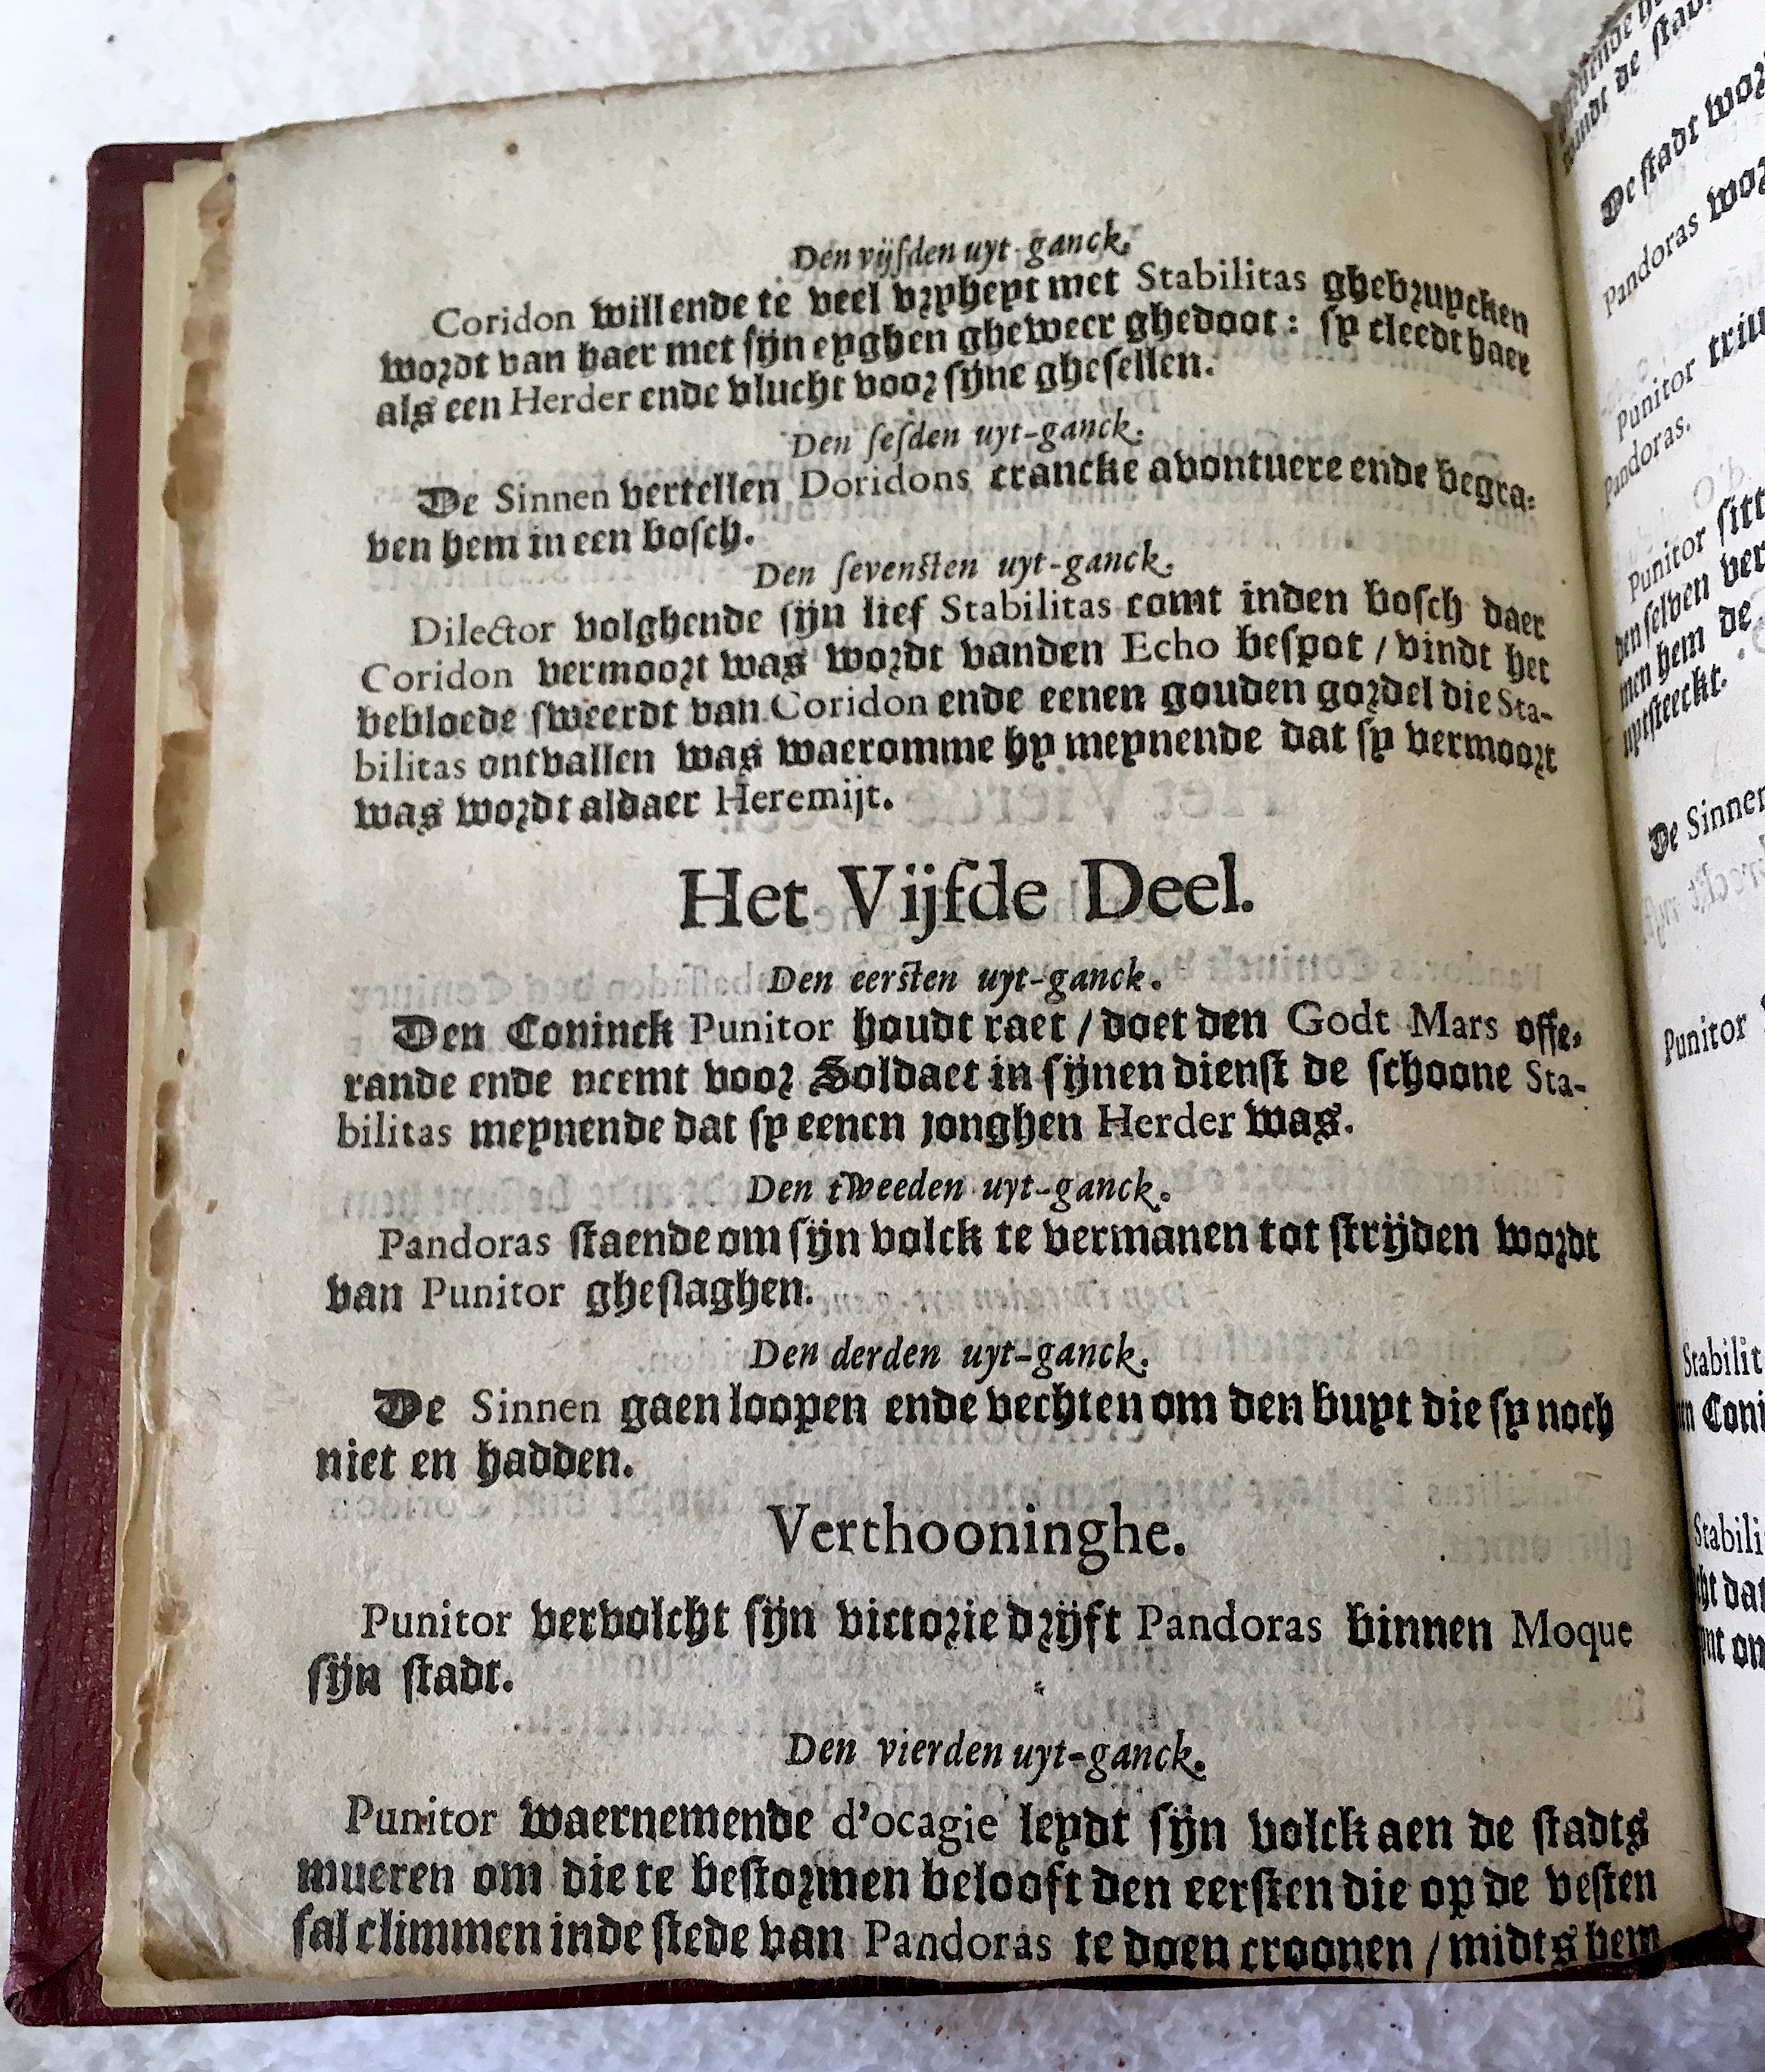 Den vijfden uyt-ganck.
Coridon willende te veel vryheyt met Stabilitas ghebruycken
wordt van haer met sijn eyghen gheweer ghedoot: sy cleedt haer
als een Herder ende vlucht voor sijne ghesellen.
Den sesden uyt-ganck.
De Sinnen vertellen Doridons crancke avontuere ende begra-
ven hem in een bosch.
Den sevensten uyt-ganck.
Dilector volghende sijn lief Stabilitas comt inden bosch daer
Coridon vermoort was wordt vanden Echo bespot / vindt het
bebloede sweerdt van Coridon ende eenen gouden gordel die Sta-
bilitas ontvallen was waeromme hy meynende dat sy vermoort
was wordt aldaer Heremijt.
Het Vijfde Deel.
Den eersten uyt-ganck.
Den Coninck Punitor houdt raet / doet den Godt Mars offe-
rande ende neemt voor Soldaet in sijnen dienst de schoone Sta-
bilitas meynende dat sy eenen jonghen Herder was.
Den tweeden uyt-ganck.
Pandoras staende om sijn volck te vermanen tot strijden wordt
van Punitor gheslaghen.
Den derden uyt-ganck.
De Sinnen gaen loopen ende vechten om den buyt die sy noch
niet en hadden.
Verthooninghe.
Punitor vervolcht sijn victorie drijft Pandoras binnen Moque
sijn stadt.
Den vierden uyt-ganck.
Punitor waernemende d'ocagie leydt sijn volck aen de stadts
mueren om die te bestormen belooft den eersten die op de vesten
sal climmen inde stede van Pandoras te doen croonen / midts hem
De stadt
Pandoras
Punitor
Pandoras.
Punitor
den selven
men hem de
uytsteeckt.
De Sinnen
Punitor